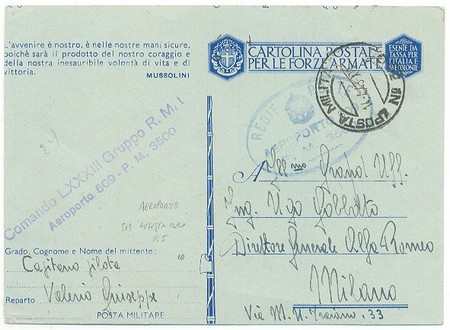 L'avvenire è nostro, è nelle nostre mani sicure,
poichè sarà il prodotto del nostro coraggio e
della nostra inesauribile volontà di vita e di
vittoria.
MUSSOLINI
Comando LXXXIII Gruppo R. M. L
Aeroporto 509 - P. M. 3500
AEROPORTO
Grado, Cognome e Nome del mittente:
Capitano pilota
Reparto Valerio Giuseppe
POSTA MILITARE
CARTOLINA POSTALE
PER LE FORZE ARMATE
ESENTE DA
TASSA PER
L'ITALIA E
COLONIE
POSTA MILITARE N
REGIE
AEROPORTO
A Ill.mo Grand'Uff.
Ing. Ugo Gobbato
Direttore Generale Alfa Romeo
Milano
Via M. U. Traiano, 33